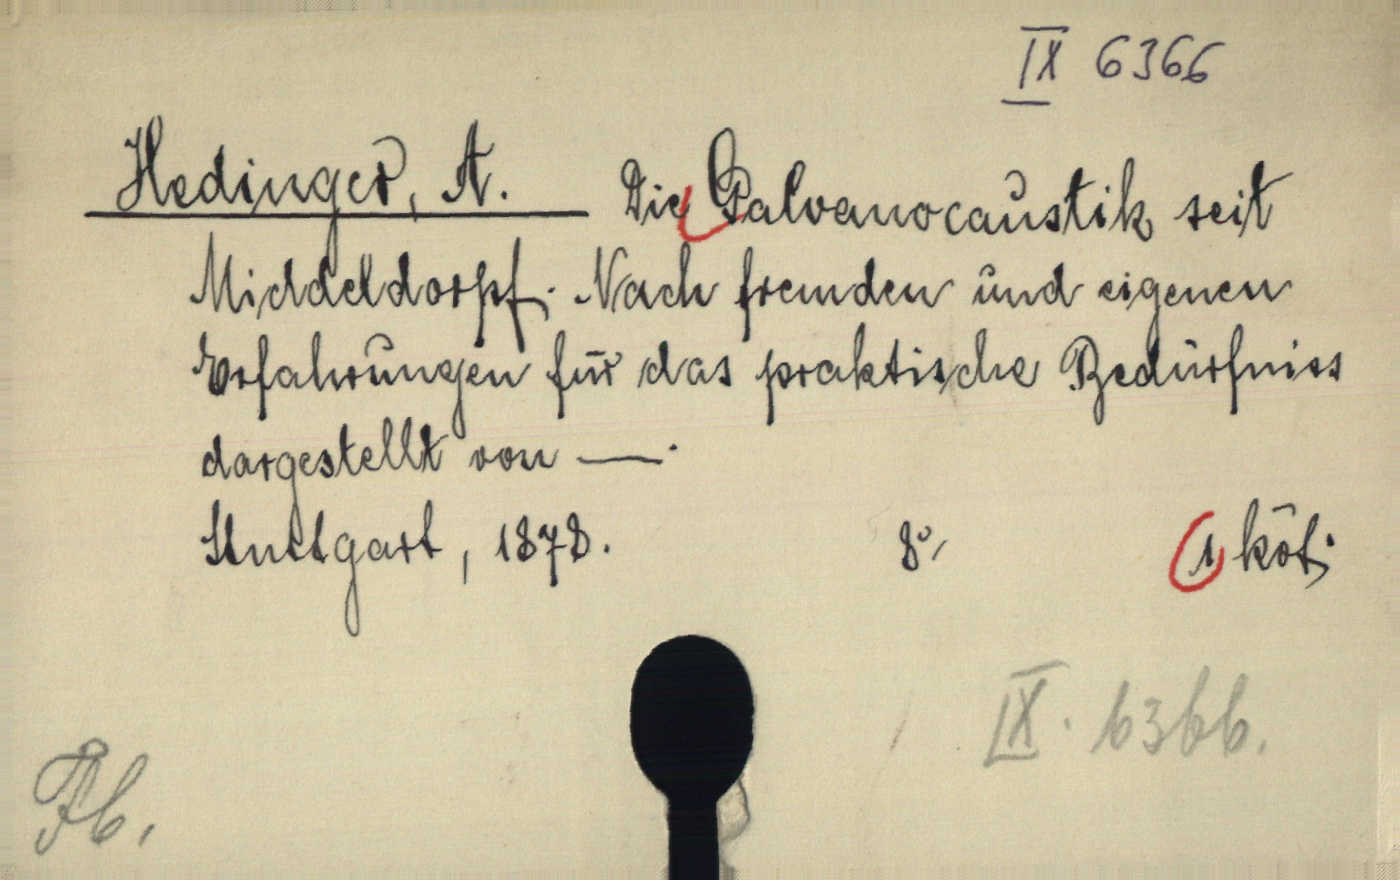 IX 6366
Hedinger, A. Die Galvanocaustik seit
Middeldorpf. Nach fremden und eigenen
Erfahrungen für das praktische Bedürfniss
dargestellt von —.
Stuttgart, 1878. 8°, 1 köt.
IX. 6366.
Fb.